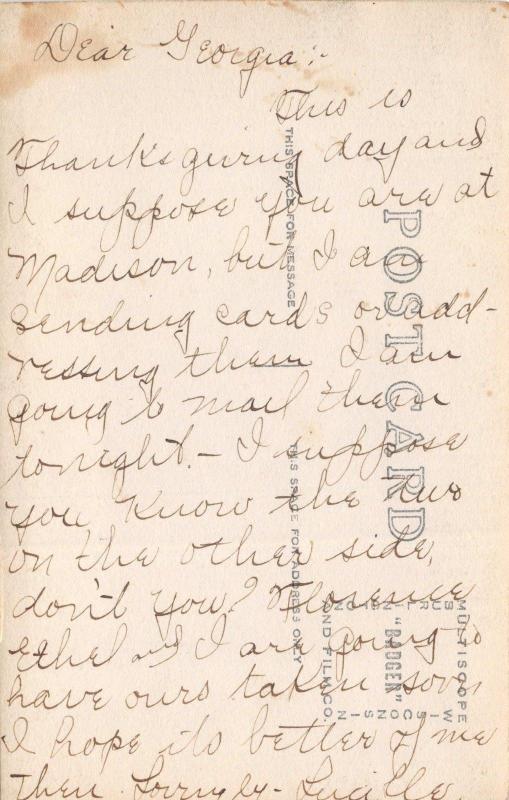 Dear Georgia:-
This is
Thanksgiving day and
I suppose you are at
Madison, but I am
sending cards or add-
ressing them I am
going to mail them
tonight. - I suppose
you know the two
on the other side,
don't you? Florence
Ethel and I are going to
have ours taken soon
I hope its better of me
then. Lovingly - Lucille.
POST CARD
THIS SPACE FOR MESSAGE
THIS SPACE FOR ADDRESS ONLY
MULTISCOPE
AND FILM CO.
"BADGER"
BURLINGTON
WISCONSIN